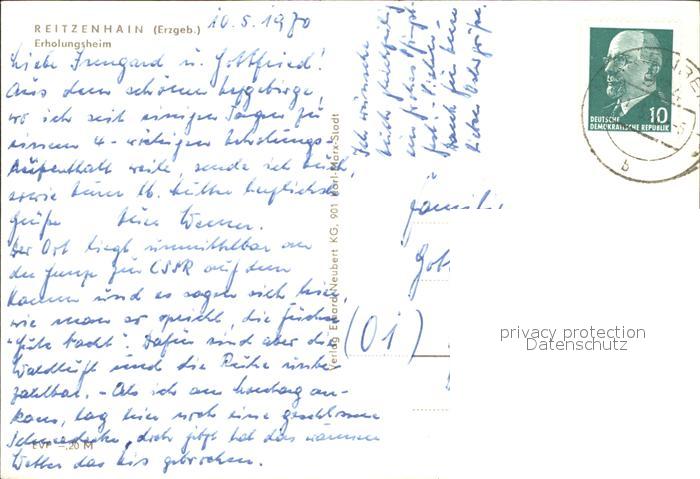 REITZENHAIN (Erzgeb.)
Erholungsheim
10.5.1970
Liebe Irmgard u. Gottfried!
Aus dem schönen Erzgebirge,
wo ich seit einigen Tagen zu
einem 4-wöchigen Erholungs-
aufenthalt weile, sende ich Euch,
sowie Eurer lb. Mutter herzlichste
Grüße Euer Werner.
Der Ort liegt unmittelbar an
der Grenze zur CSSR auf dem
Kamm und es sagen sich hier,
wie man so spricht, die Füchse
"Gute Nacht". Dafür sind aber die
Waldluft und die Ruhe unbe-
zahlbar. - Als ich am Montag an-
kam, lag hier noch eine geschlossene
Schneedecke, doch jetzt hat das warme
Wetter das Eis gebrochen.
EVP -,20 M
Ich wünsche
Euch gleichzeitig
ein frohes Pfingst-
fest. - Vielen
Dank für Eure
lieben Ostergrüße.
Verlag Erhard Neubert KG, 901 Karl-Marx-Stadt
DEUTSCHE
DEMOKRATISCHE REPUBLIK
10
b
Familie
(01)
privacy protection
Datenschutz